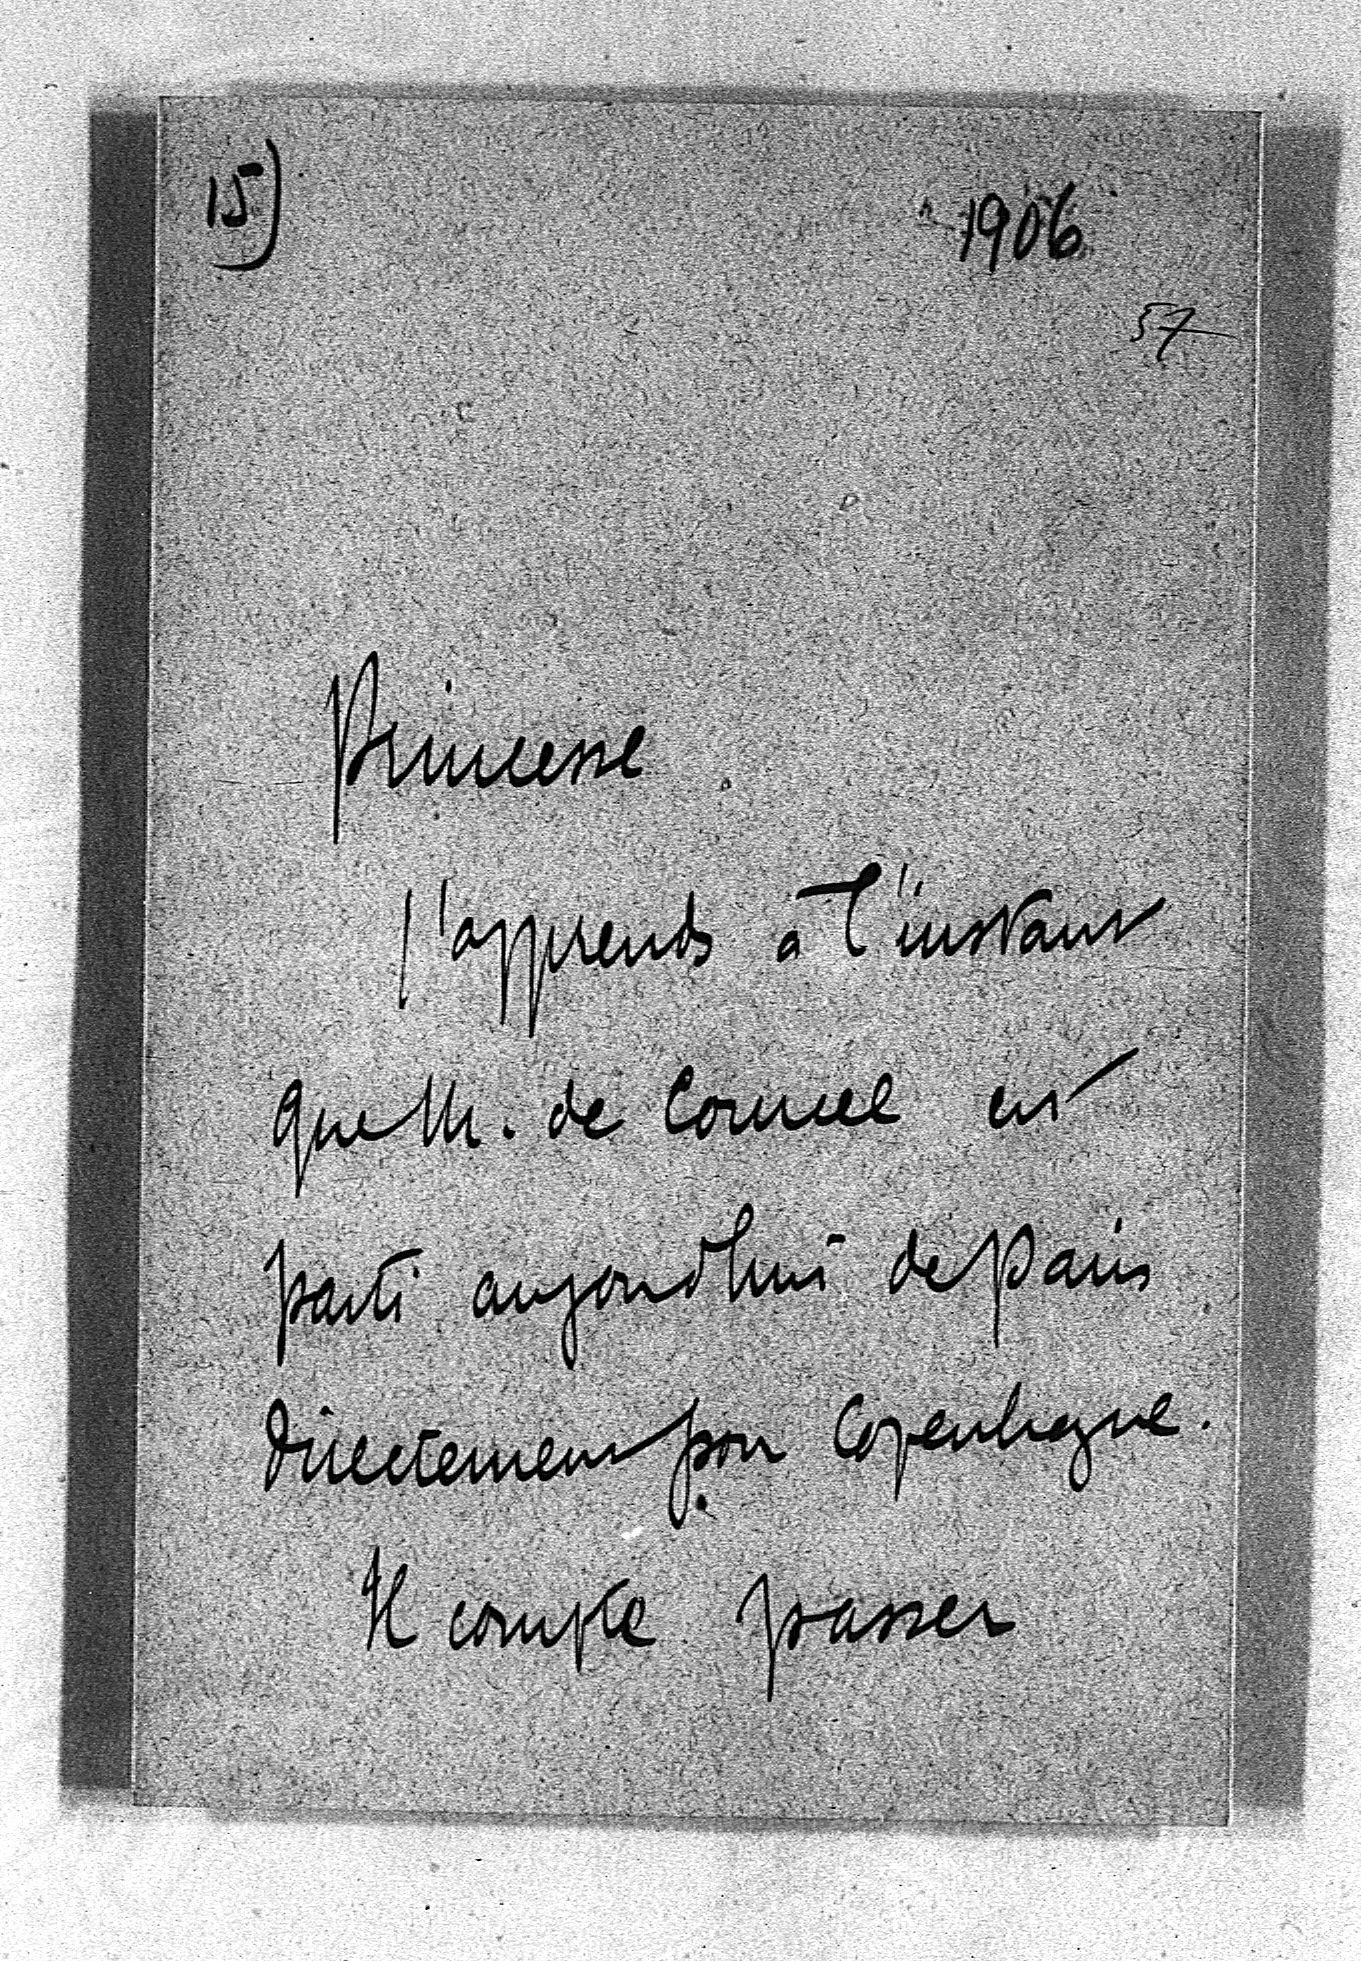 15)
1906
57
Princesse
J'apprends à l'instant
que M. de Courcel est
parti aujourd'hui de Paris
directement pour Copenhague.
Il compte passer